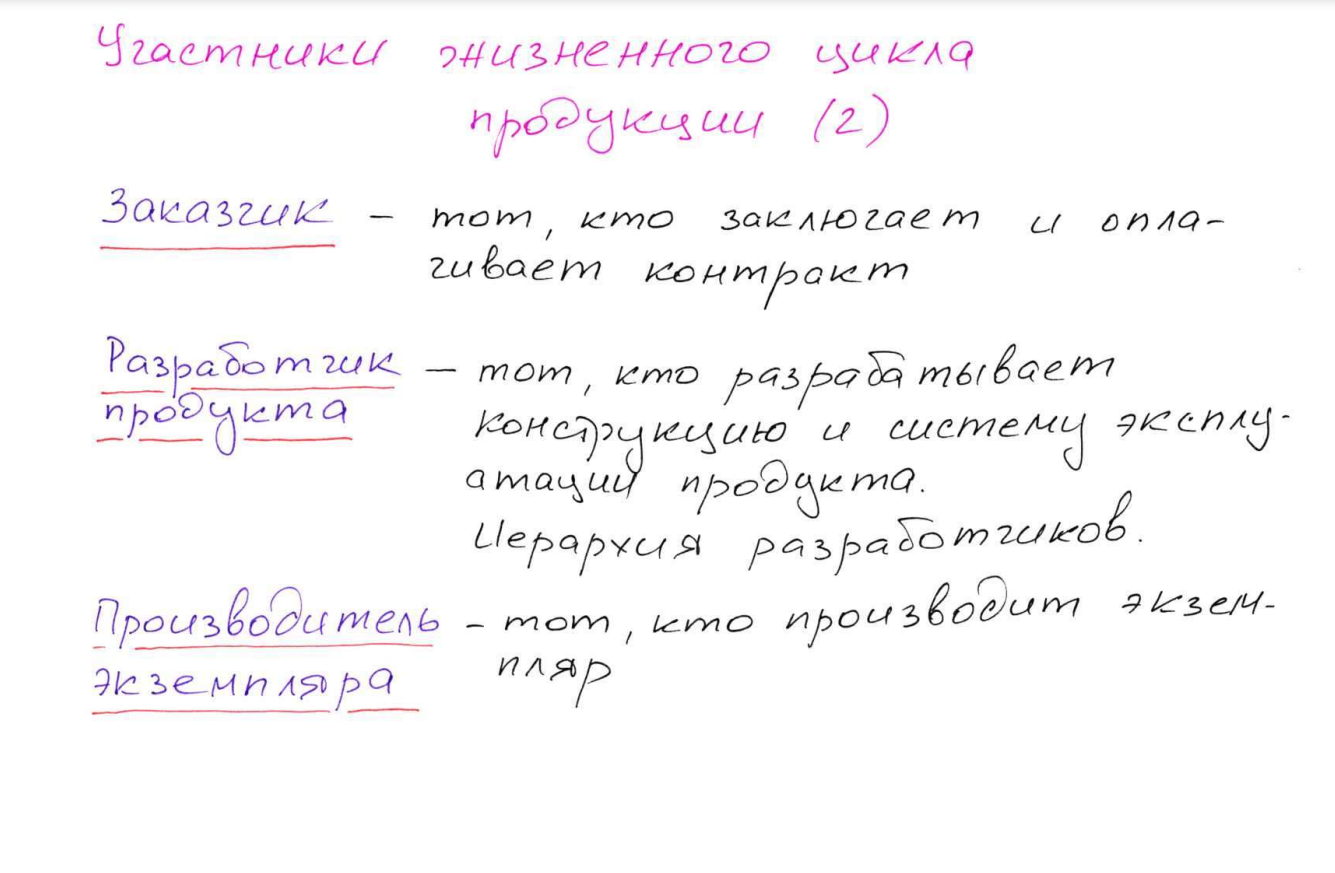 Участники жизненного цикла
продукции (2)
Заказчик – тот, кто заключает и опла-
чивает контракт
Разработчик – тот, кто разрабатывает
продукта
конструкцию и систему эксплу-
атации продукта.
Иерархия разработчиков.
Производитель – тот, кто производит экзем-
экземпляра
пляр